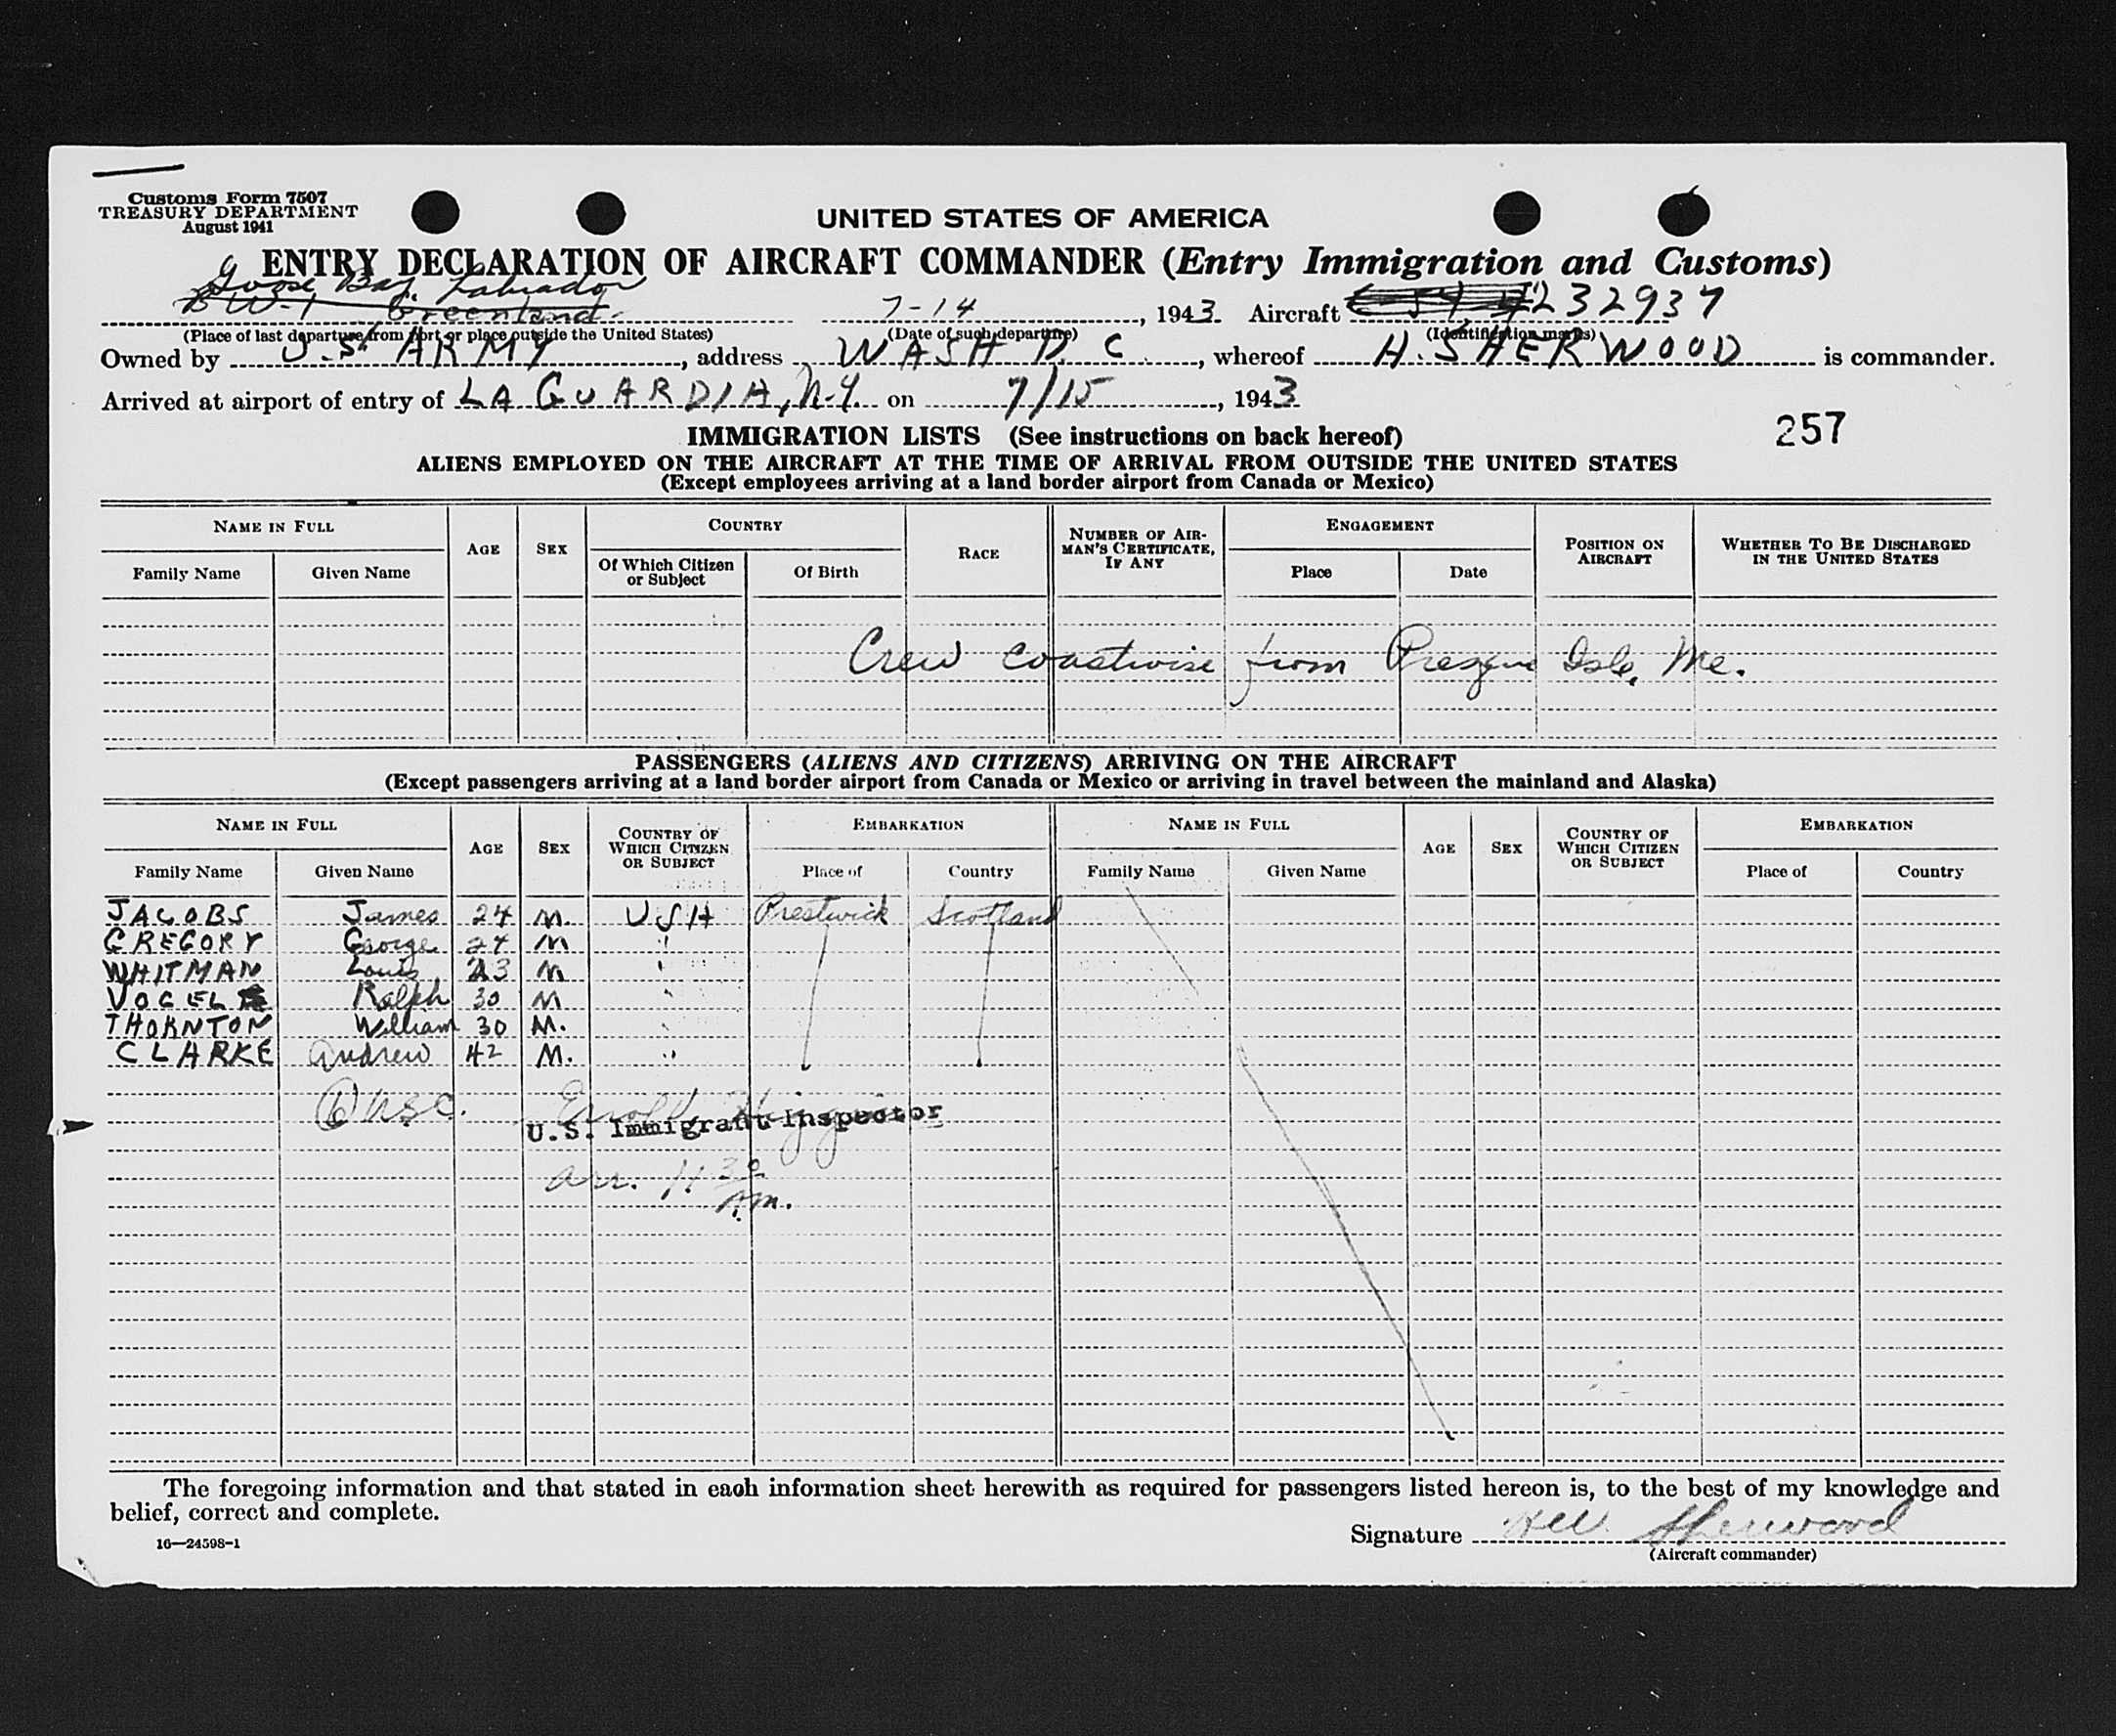 Customs Form 7507
TREASURY DEPARTMENT
August 1941
UNITED STATES OF AMERICA
ENTRY DECLARATION OF AIRCRAFT COMMANDER (Entry Immigration and Customs)
Goose Bay, Labrador
BW-1 Greenland 7-14, 1943 Aircraft 232937
(Place of last departure from port or place outside the United States) (Date of such departure) (Identification marks)
Owned by U.S. ARMY, address WASH D. C., whereof H. SHERWOOD is commander.
Arrived at airport of entry of LA GUARDIA, N.Y. on 7/15, 1943
257
IMMIGRATION LISTS (See instructions on back hereof)
ALIENS EMPLOYED ON THE AIRCRAFT AT THE TIME OF ARRIVAL FROM OUTSIDE THE UNITED STATES
(Except employees arriving at a land border airport from Canada or Mexico)
NAME IN FULL AGE SEX COUNTRY RACE NUMBER OF AIRMAN'S CERTIFICATE, IF ANY ENGAGEMENT POSITION ON AIRCRAFT WHETHER TO BE DISCHARGED IN THE UNITED STATES
Family Name Given Name Of Which Citizen or Subject Of Birth Place Date
Crew coastwise from Presque Isle, Me.
PASSENGERS (ALIENS AND CITIZENS) ARRIVING ON THE AIRCRAFT
(Except passengers arriving at a land border airport from Canada or Mexico or arriving in travel between the mainland and Alaska)
NAME IN FULL AGE SEX COUNTRY OF WHICH CITIZEN OR SUBJECT EMBARKATION NAME IN FULL AGE SEX COUNTRY OF WHICH CITIZEN OR SUBJECT EMBARKATION
Family Name Given Name Place of Country Family Name Given Name Place of Country
JACOBS James 24 M. USA Prestwick Scotland
GREGORY George 24 M "
WHITMAN Louis 23 M "
VOGEL Ralph 30 M "
THORNTON William 30 M. "
CLARKE Andrew 42 M. "
(6) USC.
U.S. Immigrant Inspector
arr. 11 30
A.M.
The foregoing information and that stated in each information sheet herewith as required for passengers listed hereon is, to the best of my knowledge and
belief, correct and complete.
Signature HW. Sherwood
(Aircraft commander)
16—24598-1